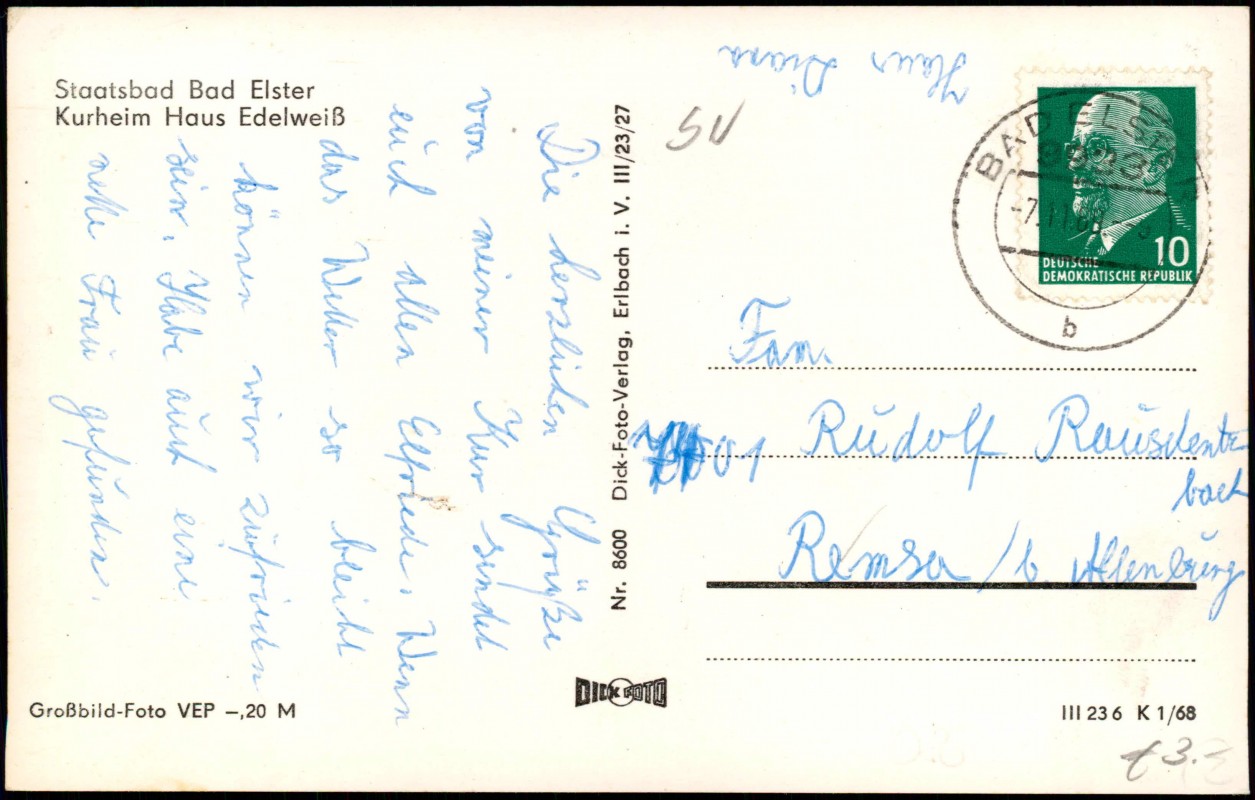 Staatsbad Bad Elster
Kurheim Haus Edelweiß
Die herzlichen Grüße
von meiner Kur sendet
euch allen Elfriede. Wenn
das Wetter so bleibt
können wir zufrieden
sein. Habe auch eine
nette Frau gefunden.
Großbild-Foto VEP –,20 M
Nr. 8600 Dick-Foto-Verlag, Erlbach i. V. III/23/27
DICK FOTO
Haus Diana
SV
BAD ELSTER
9933
b
10
DEUTSCHE
DEMOKRATISCHE REPUBLIK
Fam.
01 Rudolf Rauschen
bach
Remsa / b Altenburg
III 23 6 K 1/68
3.-